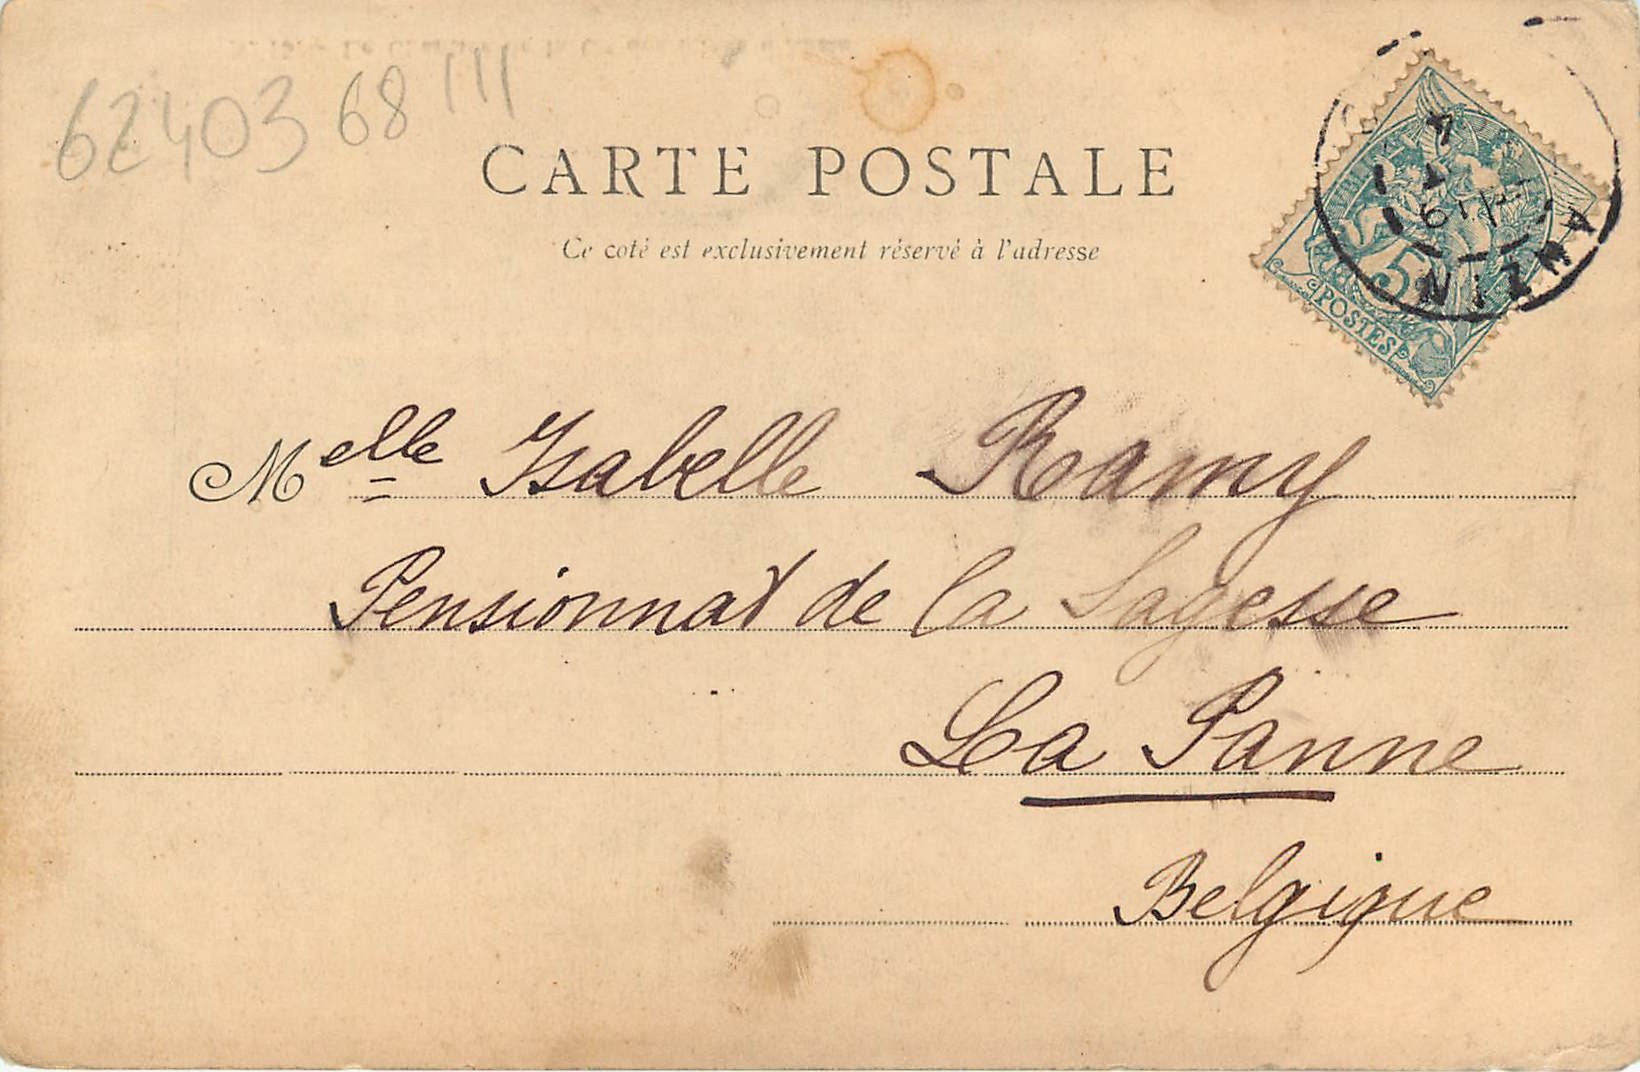 62403 68 III
CARTE POSTALE
Ce coté est exclusivement réservé à l'adresse
5
POSTES
Melle Isabelle Ramy
Pensionnat de la Sagesse
La Panne
Belgique